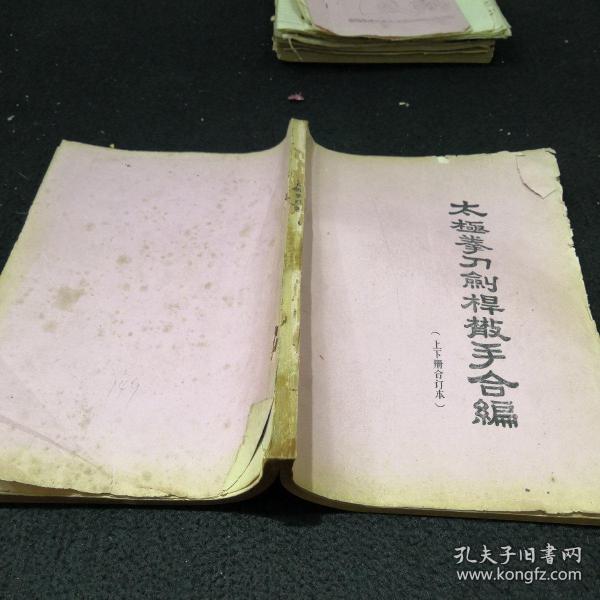 太極拳刀劍桿散手合編
（上下册合订本）
149
孔夫子旧書网
www.kongfz.com